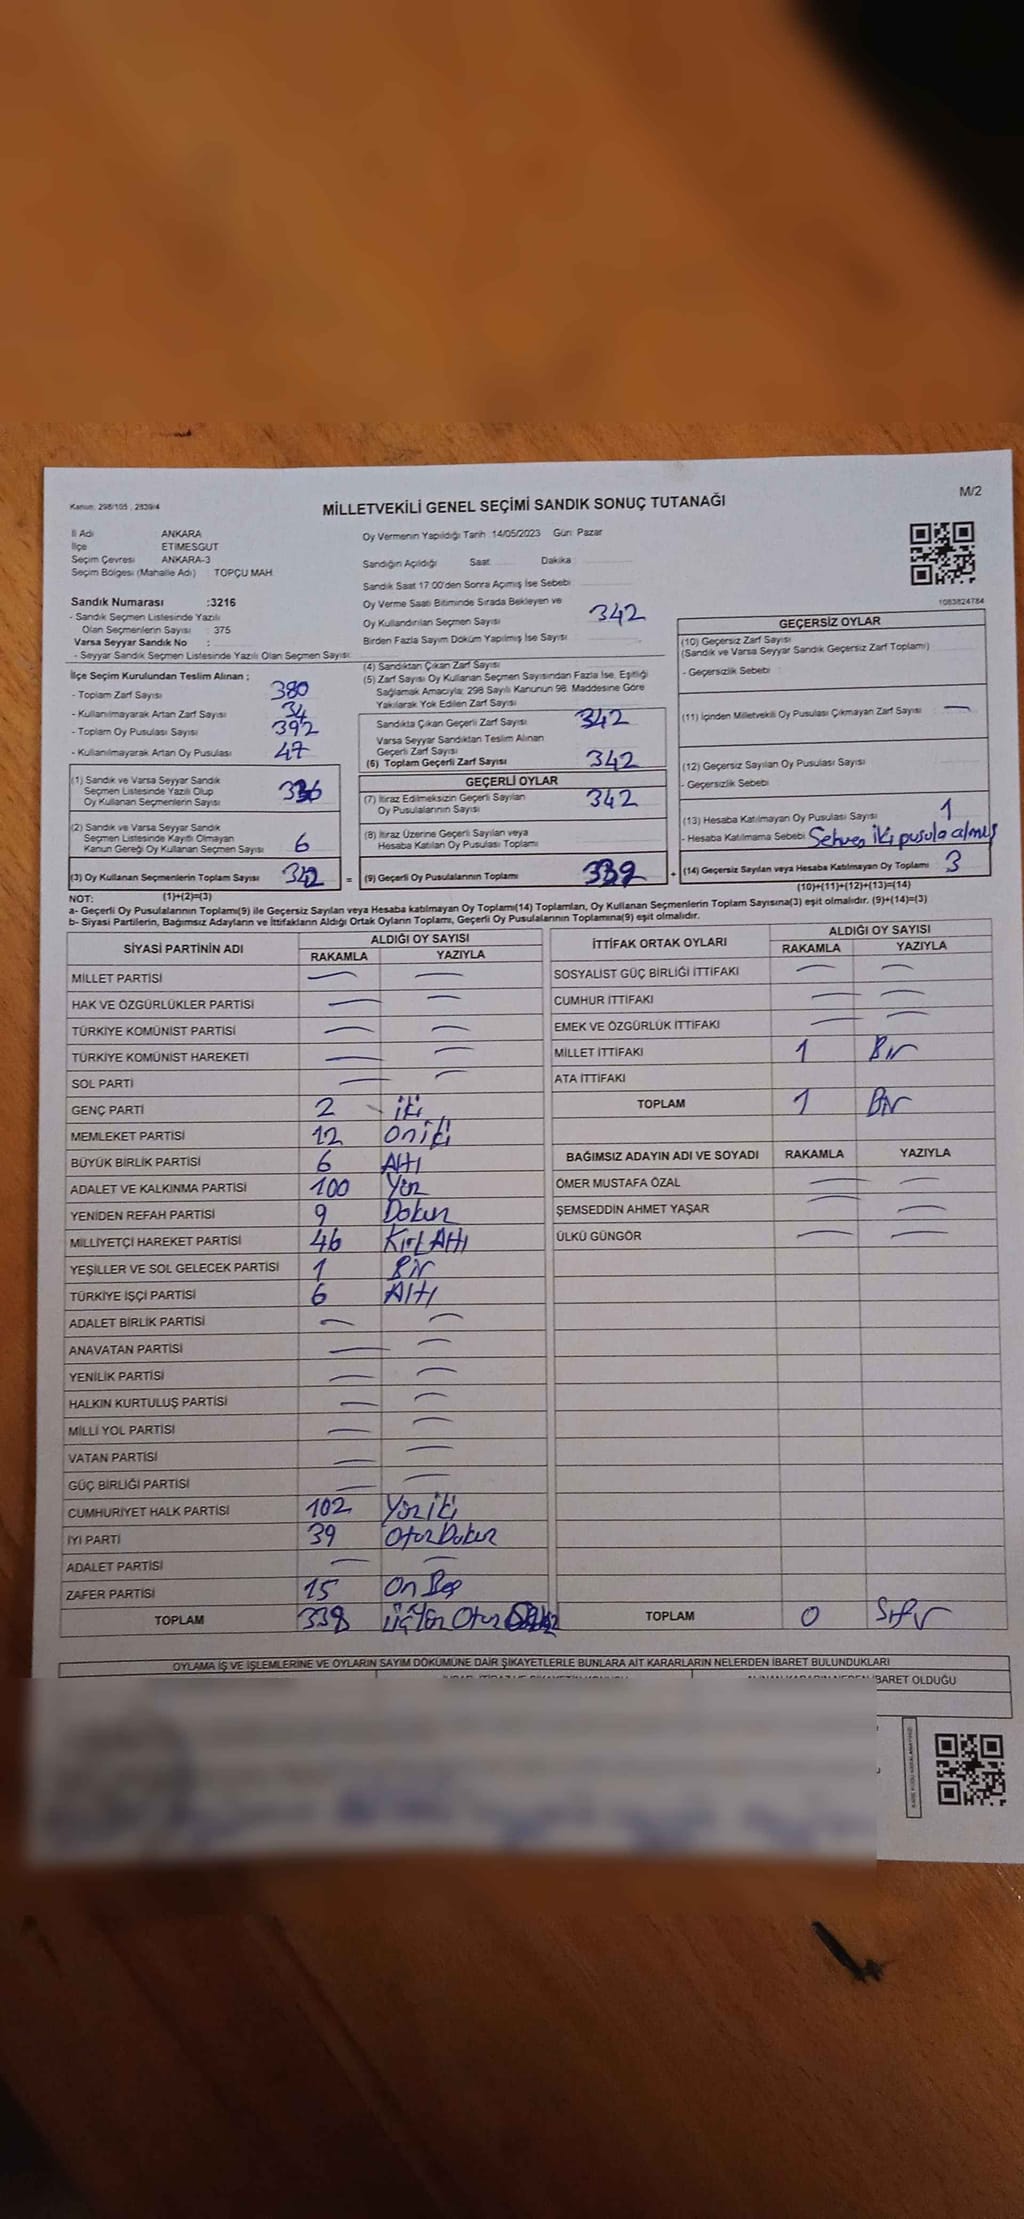 Kanun: 298/105 , 2839/4
MİLLETVEKİLİ GENEL SEÇİMİ SANDIK SONUÇ TUTANAĞI
M/2
İl Adı ANKARA
İlçe ETİMESGUT
Seçim Çevresi ANKARA-3
Seçim Bölgesi (Mahalle Adı) : TOPÇU MAH.
Oy Vermenin Yapıldığı Tarih :14/05/2023 Gün: Pazar
Sandığın Açıldığı Saat Dakika
Sandık Saat 17.00'den Sonra Açılmış İse Sebebi
Sandık Numarası :3216
- Sandık Seçmen Listesinde Yazılı
Olan Seçmenlerin Sayısı : 375
Varsa Seyyar Sandık No :
- Seyyar Sandık Seçmen Listesinde Yazılı Olan Seçmen Sayısı:
Oy Verme Saati Bitiminde Sırada Bekleyen ve
Oy Kullandırılan Seçmen Sayısı 342
Birden Fazla Sayım Döküm Yapılmış İse Sayısı
1083824784
İlçe Seçim Kurulundan Teslim Alınan ;
- Toplam Zarf Sayısı 380
- Kullanılmayarak Artan Zarf Sayısı 34
- Toplam Oy Pusulası Sayısı 392
- Kullanılmayarak Artan Oy Pusulası 47
(1) Sandık ve Varsa Seyyar Sandık
Seçmen Listesinde Yazılı Olup
Oy Kullanan Seçmenlerin Sayısı 336
(2) Sandık ve Varsa Seyyar Sandık
Seçmen Listesinde Kayıtlı Olmayan
Kanun Gereği Oy Kullanan Seçmen Sayısı 6
(3) Oy Kullanan Seçmenlerin Toplam Sayısı 342
(4) Sandıktan Çıkan Zarf Sayısı
(5) Zarf Sayısı Oy Kullanan Seçmen Sayısından Fazla İse, Eşitliği
Sağlamak Amacıyla; 298 Sayılı Kanunun 98. Maddesine Göre
Yakılarak Yok Edilen Zarf Sayısı
Sandıkta Çıkan Geçerli Zarf Sayısı 342
Varsa Seyyar Sandıktan Teslim Alınan
Geçerli Zarf Sayısı
(6) Toplam Geçerli Zarf Sayısı 342
GEÇERLİ OYLAR
(7) İtiraz Edilmeksizin Geçerli Sayılan
Oy Pusulalarının Sayısı 342
(8) İtiraz Üzerine Geçerli Sayılan veya
Hesaba Katılan Oy Pusulası Toplamı
= (9) Geçerli Oy Pusulalarının Toplamı 339 +
GEÇERSİZ OYLAR
(10) Geçersiz Zarf Sayısı
(Sandık ve Varsa Seyyar Sandık Geçersiz Zarf Toplamı)
- Geçersizlik Sebebi :
(11) İçinden Milletvekili Oy Pusulası Çıkmayan Zarf Sayısı —
(12) Geçersiz Sayılan Oy Pusulası Sayısı
- Geçersizlik Sebebi
(13) Hesaba Katılmayan Oy Pusulası Sayısı 1
- Hesaba Katılmama Sebebi Sehven iki pusula almış
(14) Geçersiz Sayılan veya Hesaba Katılmayan Oy Toplamı 3
NOT: (1)+(2)=(3) (10)+(11)+(12)+(13)=(14)
a- Geçerli Oy Pusulalarının Toplamı(9) ile Geçersiz Sayılan veya Hesaba katılmayan Oy Toplamı(14) Toplamları, Oy Kullanan Seçmenlerin Toplam Sayısına(3) eşit olmalıdır. (9)+(14)=(3)
b- Siyasi Partilerin, Bağımsız Adayların ve İttifakların Aldığı Ortak Oyların Toplamı, Geçerli Oy Pusulalarının Toplamına(9) eşit olmalıdır.
SİYASİ PARTİNİN ADI ALDIĞI OY SAYISI
RAKAMLA YAZIYLA
MİLLET PARTİSİ — —
HAK VE ÖZGÜRLÜKLER PARTİSİ — —
TÜRKİYE KOMÜNİST PARTİSİ — —
TÜRKİYE KOMÜNİST HAREKETİ — —
SOL PARTİ — —
GENÇ PARTİ 2 iki
MEMLEKET PARTİSİ 12 oniki
BÜYÜK BİRLİK PARTİSİ 6 Altı
ADALET VE KALKINMA PARTİSİ 100 Yüz
YENİDEN REFAH PARTİSİ 9 Dokuz
MİLLİYETÇİ HAREKET PARTİSİ 46 Kırk Altı
YEŞİLLER VE SOL GELECEK PARTİSİ 1 Bir
TÜRKİYE İŞÇİ PARTİSİ 6 Altı
ADALET BİRLİK PARTİSİ — —
ANAVATAN PARTİSİ — —
YENİLİK PARTİSİ — —
HALKIN KURTULUŞ PARTİSİ — —
MİLLİ YOL PARTİSİ — —
VATAN PARTİSİ — —
GÜÇ BİRLİĞİ PARTİSİ — —
CUMHURİYET HALK PARTİSİ 102 Yüz iki
İYİ PARTİ 39 Otuz Dokuz
ADALET PARTİSİ — —
ZAFER PARTİSİ 15 On Beş
TOPLAM 338 Üç Yüz Otuz
İTTİFAK ORTAK OYLARI ALDIĞI OY SAYISI
RAKAMLA YAZIYLA
SOSYALİST GÜÇ BİRLİĞİ İTTİFAKI — —
CUMHUR İTTİFAKI — —
EMEK VE ÖZGÜRLÜK İTTİFAKI — —
MİLLET İTTİFAKI 1 Bir
ATA İTTİFAKI
TOPLAM 1 Bir
BAĞIMSIZ ADAYIN ADI VE SOYADI RAKAMLA YAZIYLA
ÖMER MUSTAFA ÖZAL — —
ŞEMSEDDİN AHMET YAŞAR — —
ÜLKÜ GÜNGÖR — —
TOPLAM 0 Sıfır
OYLAMA İŞ VE İŞLEMLERİNE VE OYLARIN SAYIM DÖKÜMÜNE DAİR ŞİKAYETLERLE BUNLARA AİT KARARLARIN NELERDEN İBARET BULUNDUKLARI
İBARET OLDUĞU